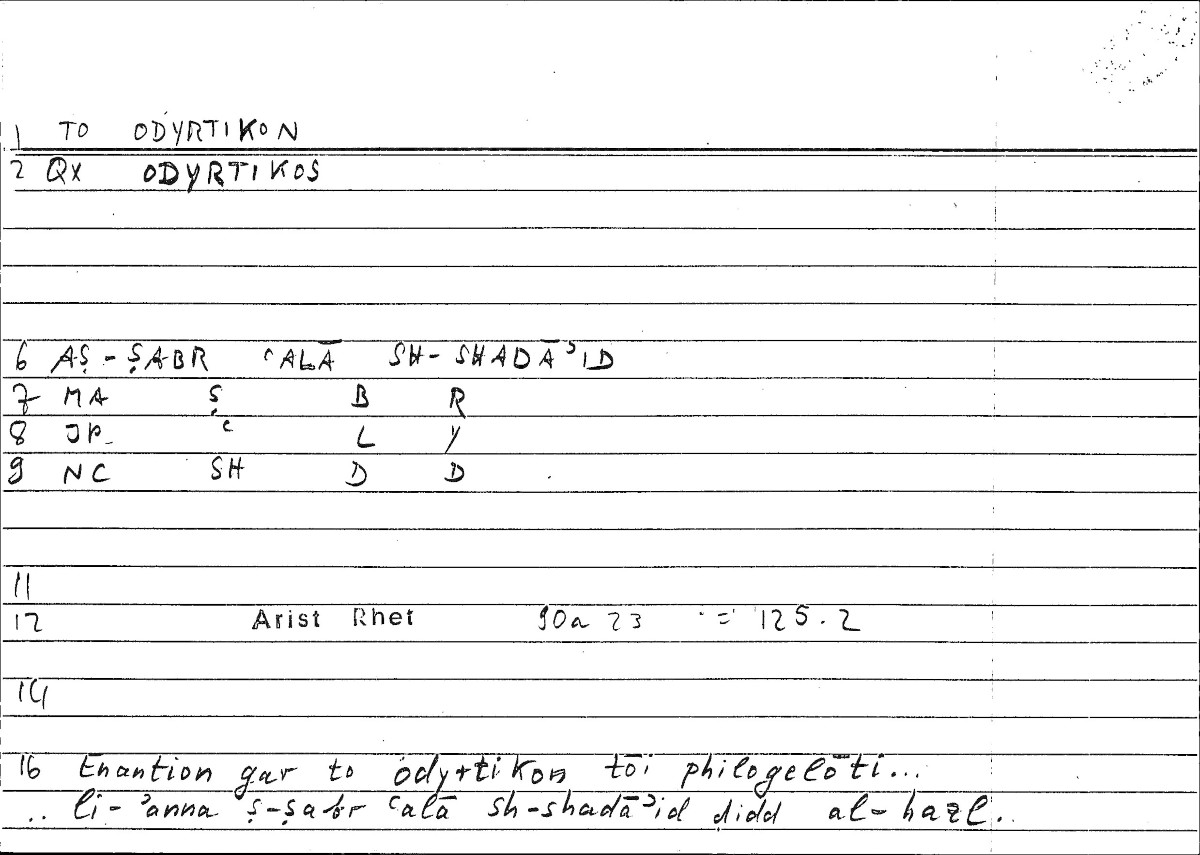 1 TO ODYRTIKON
2 Qx ODYRTIKOS
6 AṢ-ṢABR ʿALĀ SH-SHADĀʾID
7 MA Ṣ B R
8 JP ʿ L Y
9 NC SH D D
11
12 Arist Rhet 90a 23 = 125.2
14
16 Enantion gar to odyrtikon tōi philogelōti...
.. li-ʾanna ṣ-ṣabr ʿalā sh-shadāʾid didd al-hazl..